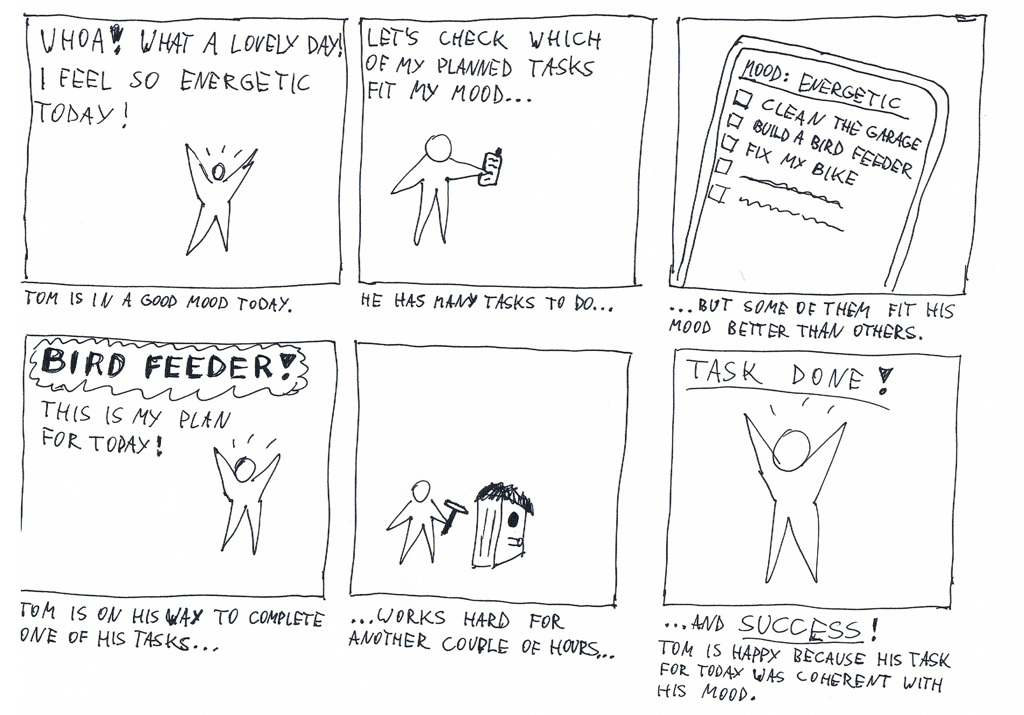 WHOA! WHAT A LOVELY DAY!
I FEEL SO ENERGETIC
TODAY!
TOM IS IN A GOOD MOOD TODAY.
LET'S CHECK WHICH
OF MY PLANNED TASKS
FIT MY MOOD...
HE HAS MANY TASKS TO DO...
MOOD: ENERGETIC
CLEAN THE GARAGE
BUILD A BIRD FEEDER
FIX MY BIKE
...BUT SOME OF THEM FIT HIS
MOOD BETTER THAN OTHERS.
BIRD FEEDER!
THIS IS MY PLAN
FOR TODAY!
TOM IS ON HIS WAY TO COMPLETE
ONE OF HIS TASKS...
...WORKS HARD FOR
ANOTHER COUPLE OF HOURS...
TASK DONE!
...AND SUCCESS!
TOM IS HAPPY BECAUSE HIS TASK
FOR TODAY WAS COHERENT WITH
HIS MOOD.